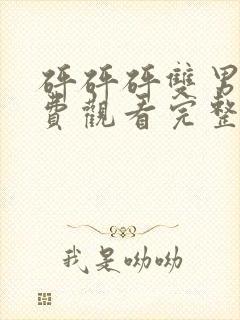 砰砰砰雙男
費觀看完整
我是呦呦